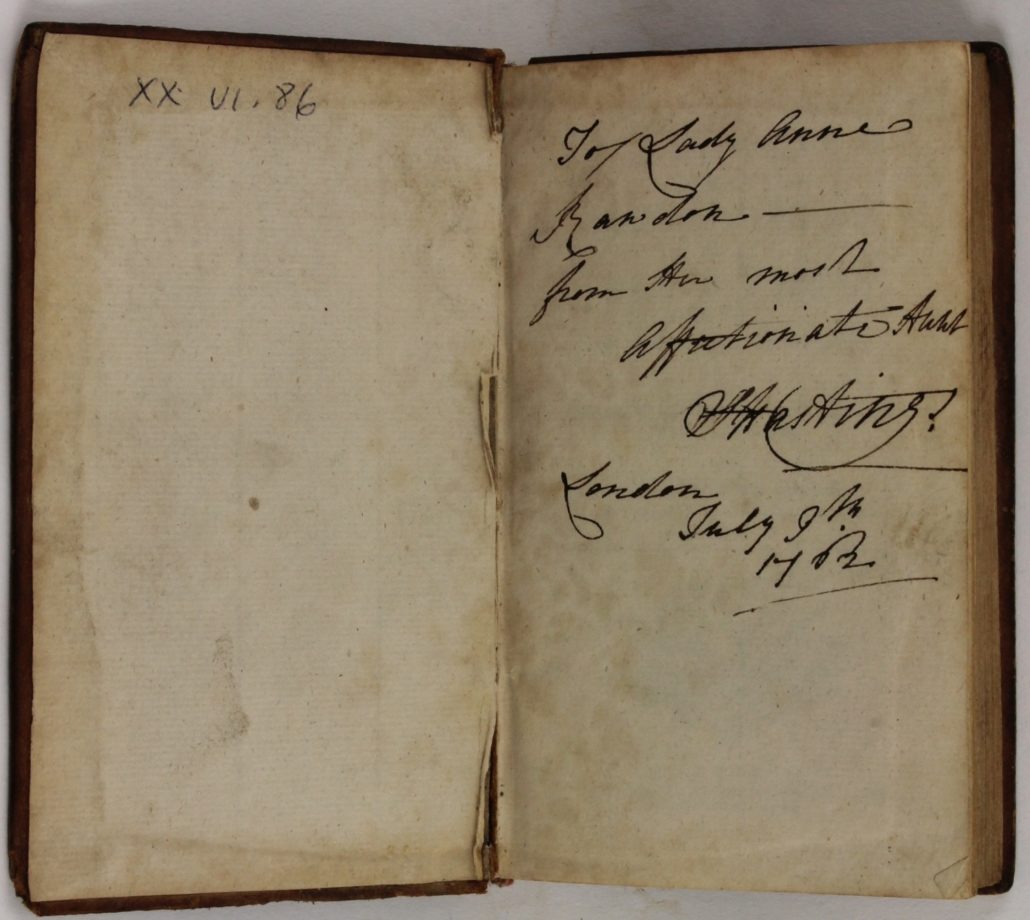 XX VI. 86
To Lady Anne
Rawdon —
from Her most
Affectionate Aunt
Hastings
London
July 9th
1762